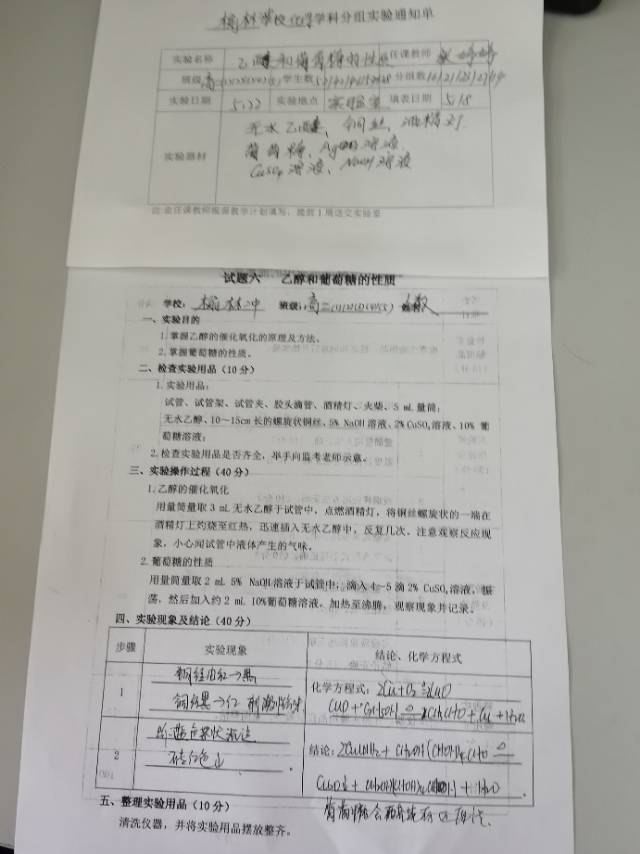 学校化学学科分组实验通知单
实验名称 乙醇和葡萄糖的性质 任课教师
班级 学生数 分组数
实验日期 5.22 实验地点 实验室 填表日期 5.18
实验器材
无水乙醇、铜丝、酒精灯
葡萄糖、溶液
CuSO4溶液、NaOH溶液
注:由任课教师根据教学计划填写,提前1周送交实验室
试题六 乙醇和葡萄糖的性质
学校: 班级:高二
一、实验目的
1.掌握乙醇的催化氧化的原理及方法。
2.掌握葡萄糖的性质。
二、检查实验用品(10分)
1.实验用品:
试管、试管架、试管夹、胶头滴管、酒精灯、火柴、5 mL量筒;
无水乙醇、10～15cm长的螺旋状铜丝、5% NaOH溶液、2%CuSO₄溶液、10%葡
萄糖溶液;
2.检查实验用品是否齐全,举手向监考老师示意。
三、实验操作过程(40分)
1.乙醇的催化氧化
用量筒量取3 mL无水乙醇于试管中,点燃酒精灯,将铜丝螺旋状的一端在
酒精灯上灼烧至红热,迅速插入无水乙醇中,反复几次,注意观察反应现
象,小心闻试管中液体产生的气味。
2.葡萄糖的性质
用量筒量取2 mL 5% NaOH溶液于试管中,滴入4～5滴2% CuSO₄溶液,振
荡,然后加入约2 mL 10%葡萄糖溶液,加热至沸腾,观察现象并记录。
四、实验现象及结论(40分)
步骤 实验现象 结论、化学方程式
1 铜丝由红→黑 化学方程式:2Cu+O₂≜2CuO
铜丝黑→红 刺激性气味
2 结论:
砖红色↓
五、整理实验用品(10分)
清洗仪器,并将实验用品摆放整齐。